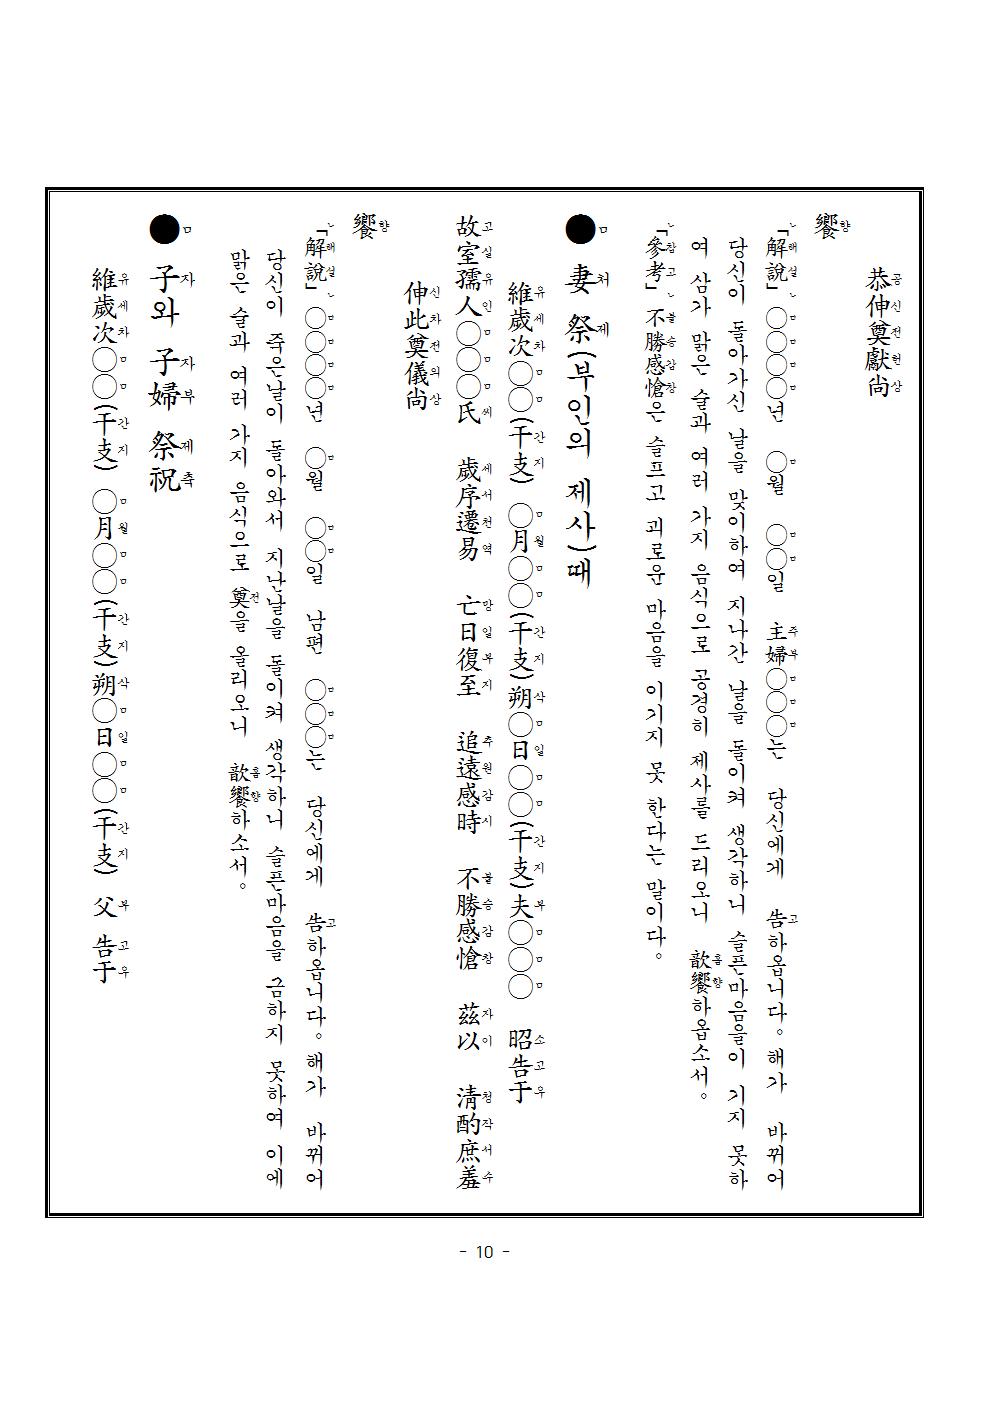 恭伸奠獻尙
饗
「解說」○○○○년 ○월 ○○일 主婦○○○는 당신에게 告하옵니다。해가 바뀌어
당신이 돌아가신 날을 맞이하여 지나간 날을 돌이켜 생각하니 슬픈마음을이 기지 못하
여 삼가 맑은 술과 여러 가지 음식으로 공경히 제사를 드리오니 歆饗하옵소서。
「參考」不勝感愴은 슬프고 괴로운 마음을 이기지 못 한다는 말이다。
●妻 祭(부인의 제사)때
維歲次○○(干支) ○月○○(干支)朔○日○○(干支)夫○○○ 昭告于
故室孺人○○○氏 歲序遷易 亡日復至 追遠感時 不勝感愴 茲以 淸酌庶羞
伸此奠儀尙
饗
「解說」○○○○년 ○월 ○○일 남편 ○○○는 당신에게 告하옵니다。해가 바뀌어
당신이 죽은날이 돌아와서 지난날을 돌이켜 생각하니 슬픈마음을 금하지 못하여 이에
맑은 술과 여러 가지 음식으로 奠을 올리오니 歆饗하소서。
●子와 子婦 祭祝
維歲次○○(干支) ○月○○(干支)朔○日○○(干支) 父 告于
- 10 -